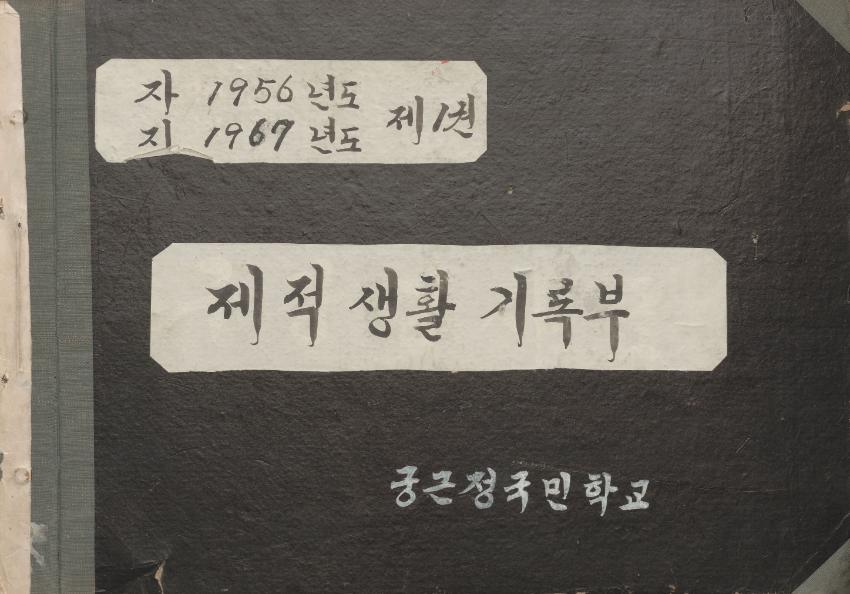 자 1956년도
지 1967년도
제1권
제적 생활 기록부
궁근정국민학교